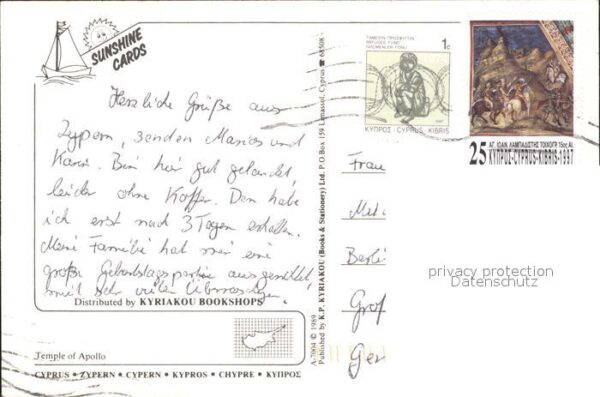 SUNSHINE
CARDS
Herzliche Grüße aus
Zypern, senden Marios und
Karin. Bin hier gut gelandet
leider ohne Koffer. Den habe
ich erst nach 3 Tagen erhalten.
Meine Familie hat mir eine
große Geburtstagspartie ausgerichtet
mit sehr vielen Überraschungen.
Distributed by KYRIAKOU BOOKSHOPS
Temple of Apollo
CYPRUS • ZYPERN • CYPERN • KYPROS • CHYPRE • ΚΥΠΡΟΣ
A-7004 © 1989
Published by K.P. KYRIAKOU (Books & Stationery) Ltd. P O Box 159 Limassol, Cyprus ☎ 68508
ΤΑΜΕΙΟΝ ΠΡΟΣΦΥΓΩΝ
REFUGEE FUND
GÖÇMENLER FONU
1c
ΚΥΠΡΟΣ-CYPRUS-KIBRIS
25 ΑΓ. ΙΩΑΝ. ΛΑΜΠΑΔΙΣΤΗΣ ΤΟΙΧΟΓΡ. 15ος ΑΙ.
ΚΥΠΡΟΣ-CYPRUS-KIBRIS-1997
Frau
Berli
Grof
Ger
privacy protection
Datenschutz